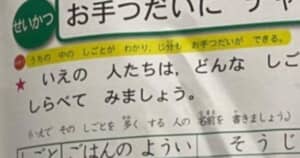 せいかつ
お手つだいに チャ
うちの 中の しごとが わかり、じ分も お手つだいが できる。
★ いえの 人たちは、どんな しご
しらべて みましょう。
かぞえて そのしごとを 多く する 人の 名前を 書きましょう。
しごと ごはんの ようい そうじ